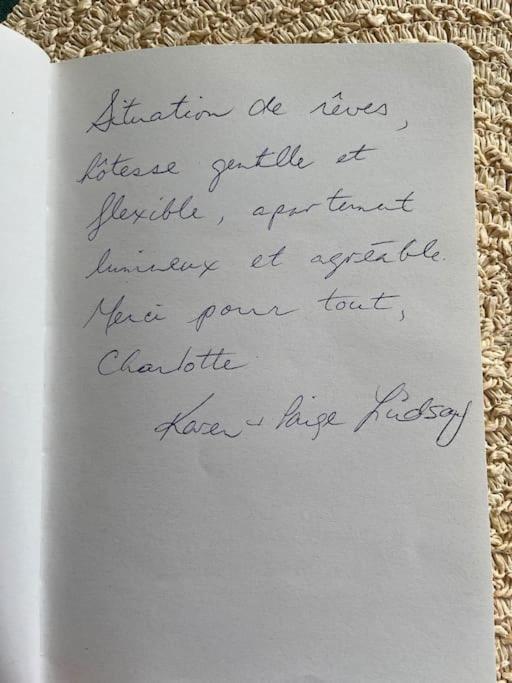 Situation de rêves,
hôtesse gentille et
flexible, apartement
lumineux et agréable.
Merci pour tout,
Charlotte
Karen + Paige Lindsay